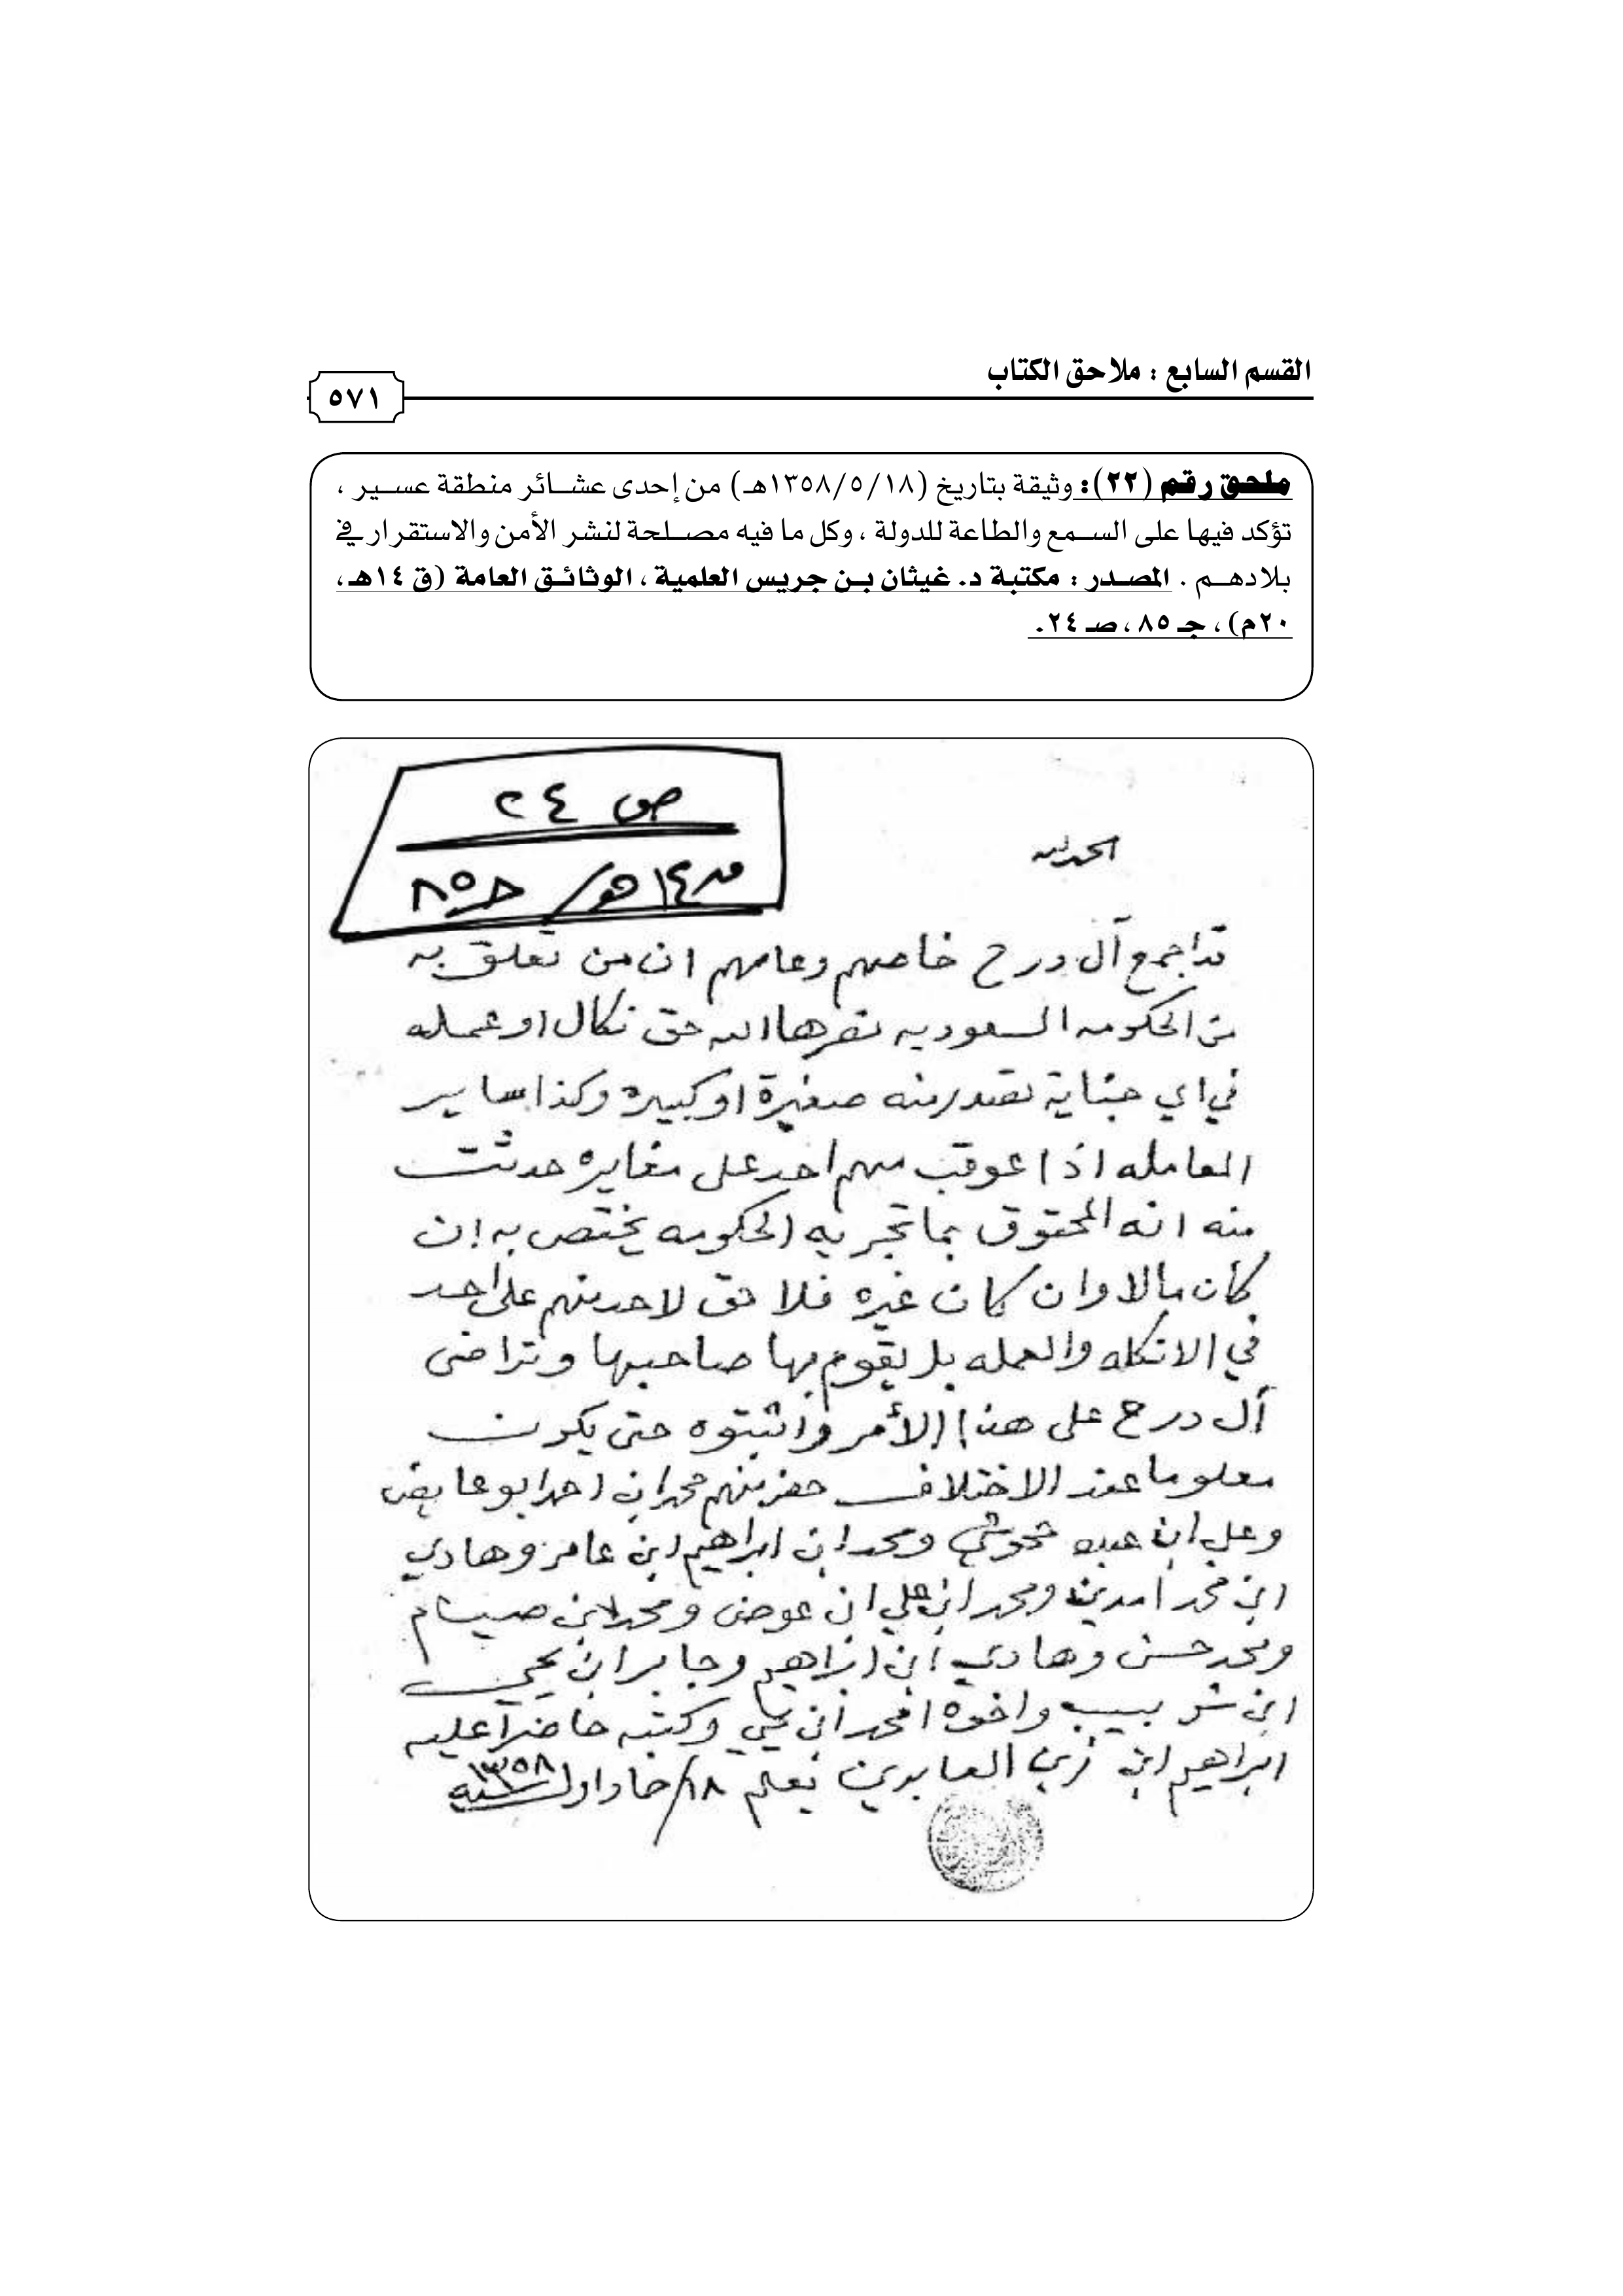 القسم السابع : ملاحق الكتاب
٥٧١
ملحق رقم (٢٢): وثيقة بتاريخ (١٣٥٨/٥/١٨هـ) من إحدى عشائر منطقة عسير ،
تؤكد فيها على السمع والطاعة للدولة ، وكل ما فيه مصلحة لنشر الأمن والاستقرار في
بلادهم . المصدر : مكتبة د. غيثان بن جريس العلمية ، الوثائق العامة (ق ١٤هـ،
٢٠م) ، جـ ٨٥ ، صـ ٢٤.
ص ٢٤
ق١٤هـ/ جـ٨٥
الحمد لله
قد اجمع آل درح خاصهم وعامهم ان من تعلق به
من الحكومه السعوديه نصرها الله حق نكال او عمله
في اي جناية تصدر منه صغيرة او كبيره وكذا ساير
المعامله اذا عوقب منهم احد على مغايره حدثت
منه انه المحقوق بما تجريه الحكومه يختص به ان
كان مالا وان كان غيره فلا حق لاحد منهم على احد
في الانكله والعمله بل يقوم بها صاحبها وتراضى
آل درح على هذا الأمر واثبتوه حتى يكون
معلوما عند الاختلاف حضر منهم محمد ابن احمد ابو عايض
وعلي ابن عبده ومحمد ابن ابراهيم ابن عامر وهادي
ابن محمد ومحمد ابن علي ابن عوض ومحمد ابن صيام
ومحمد حسن وهادي ابن ابراهيم وجابر ابن يحي
ابن شبيب واخوه محمد ابن يحيى وكتبه حاضرا عليه
ابراهيم ابن زين العابدين نعلم ١٨/جماد اول سنة ١٣٥٨